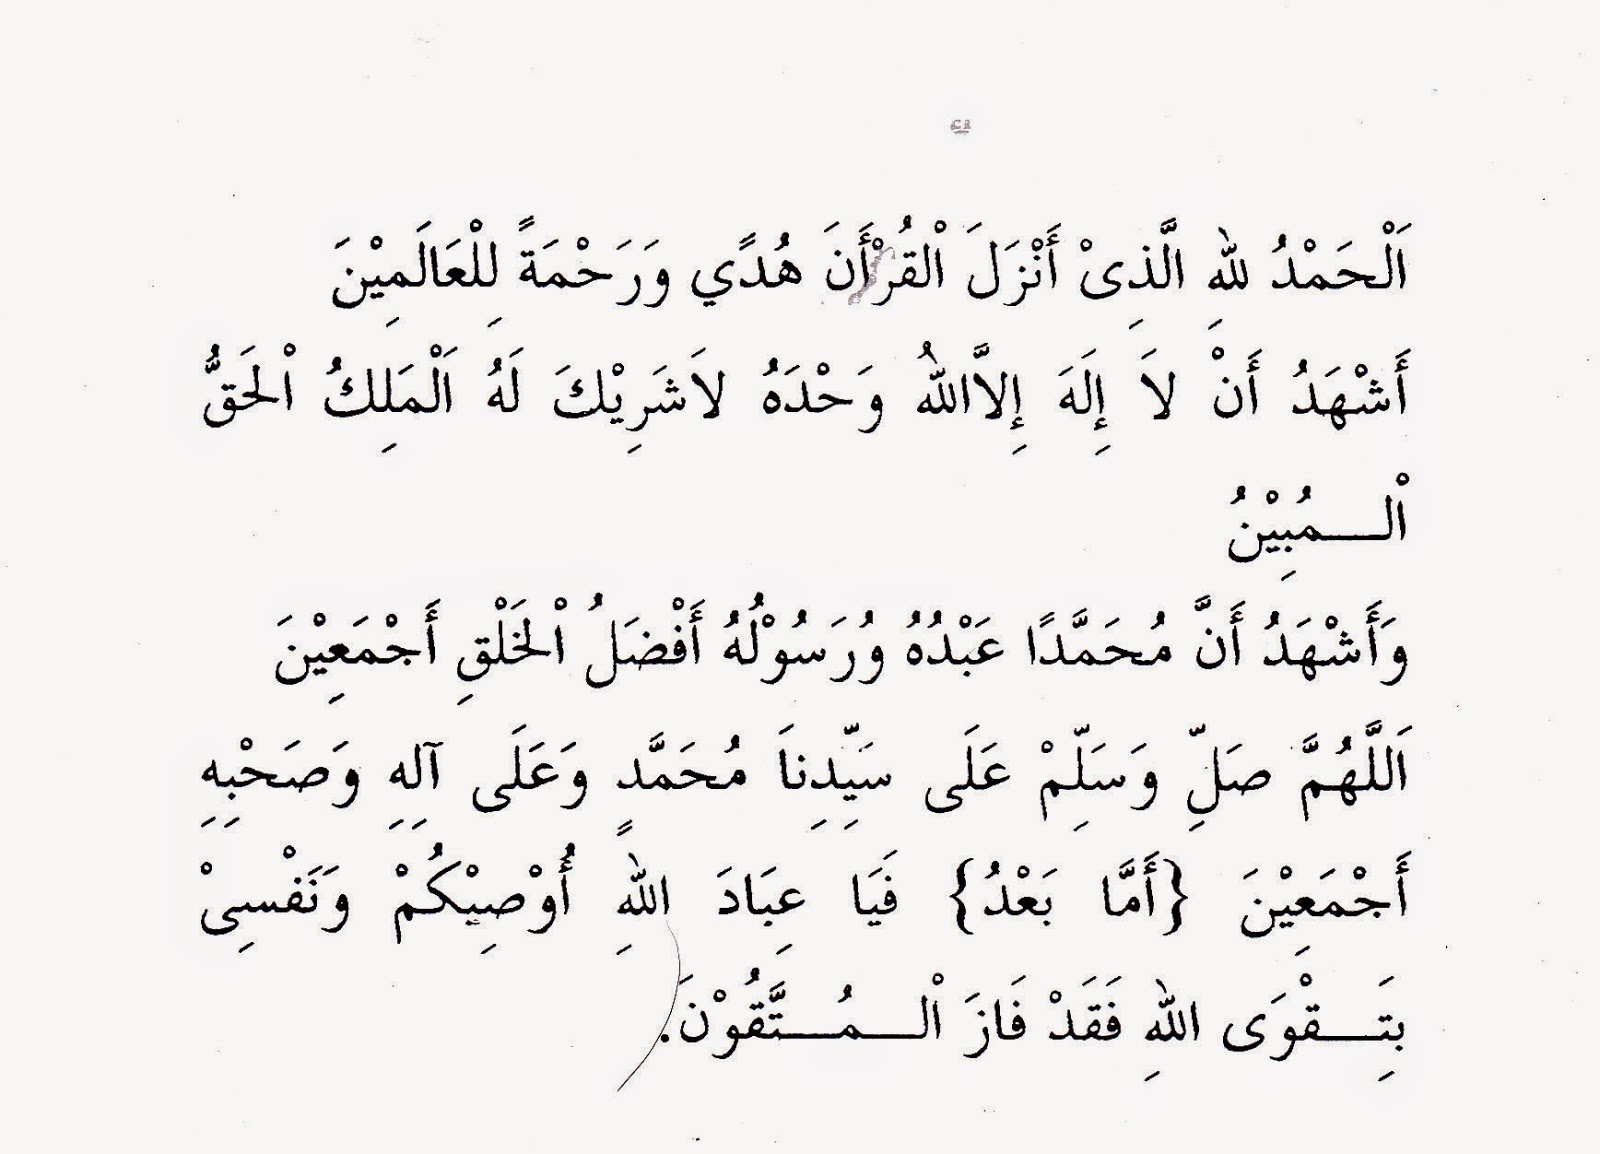 اَلْحَمْدُ للهِ الَّذِىْ أَنْزَلَ الْقُرْأَنَ هُدًي وَرَحْمَةً لِلْعَالَمِيْنَ
أَشْهَدُ أَنْ لاَ إِلَهَ إِلاَّاللهُ وَحْدَهُ لاَشَرِيْكَ لَهُ اَلْمَلِكُ اْلحَقُّ
اْلـــمُبِيْنُ
وَأَشْهَدُ أَنَّ مُحَمَّدًا عَبْدُهُ وُرَسُوْلُهُ أَفْضَلُ اْلخَلْقِ أَجْمَعِيْنَ
اَللَّهُمَّ صَلِّ وَسَلِّمْ عَلَى سَيِّدِناَ مُحَمَّدٍ وَعَلَى آلِهِ وَصَحْبِهِ
أَجْمَعِيْنَ {أَمَّا بَعْدُ} فَيَا عِبَادَ اللهِ أُوْصِيْكُمْ وَنَفْسِىْ
بِتَـــقْوَى اللهِ فَقَدْ فَازَ اْلـــمُـــتَّقُوْنَ.